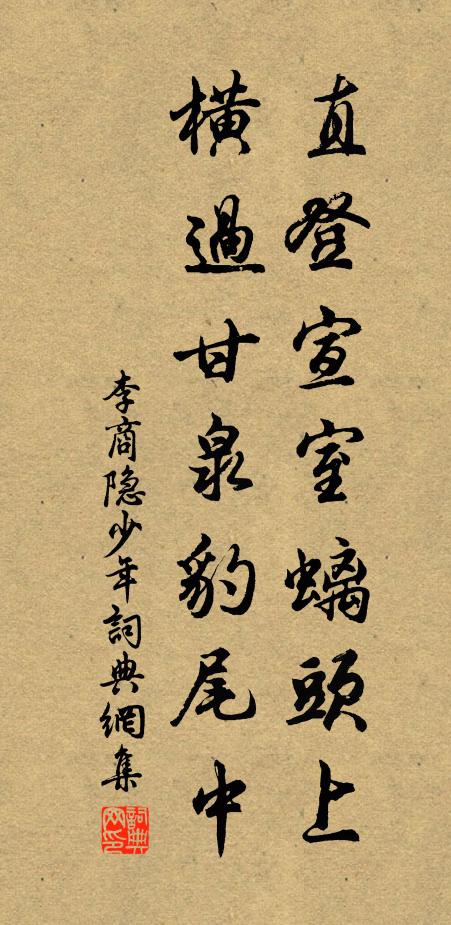 直登宣室螭頭上
橫過甘泉豹尾中
李商隐少年詞典網集
詞典
网印